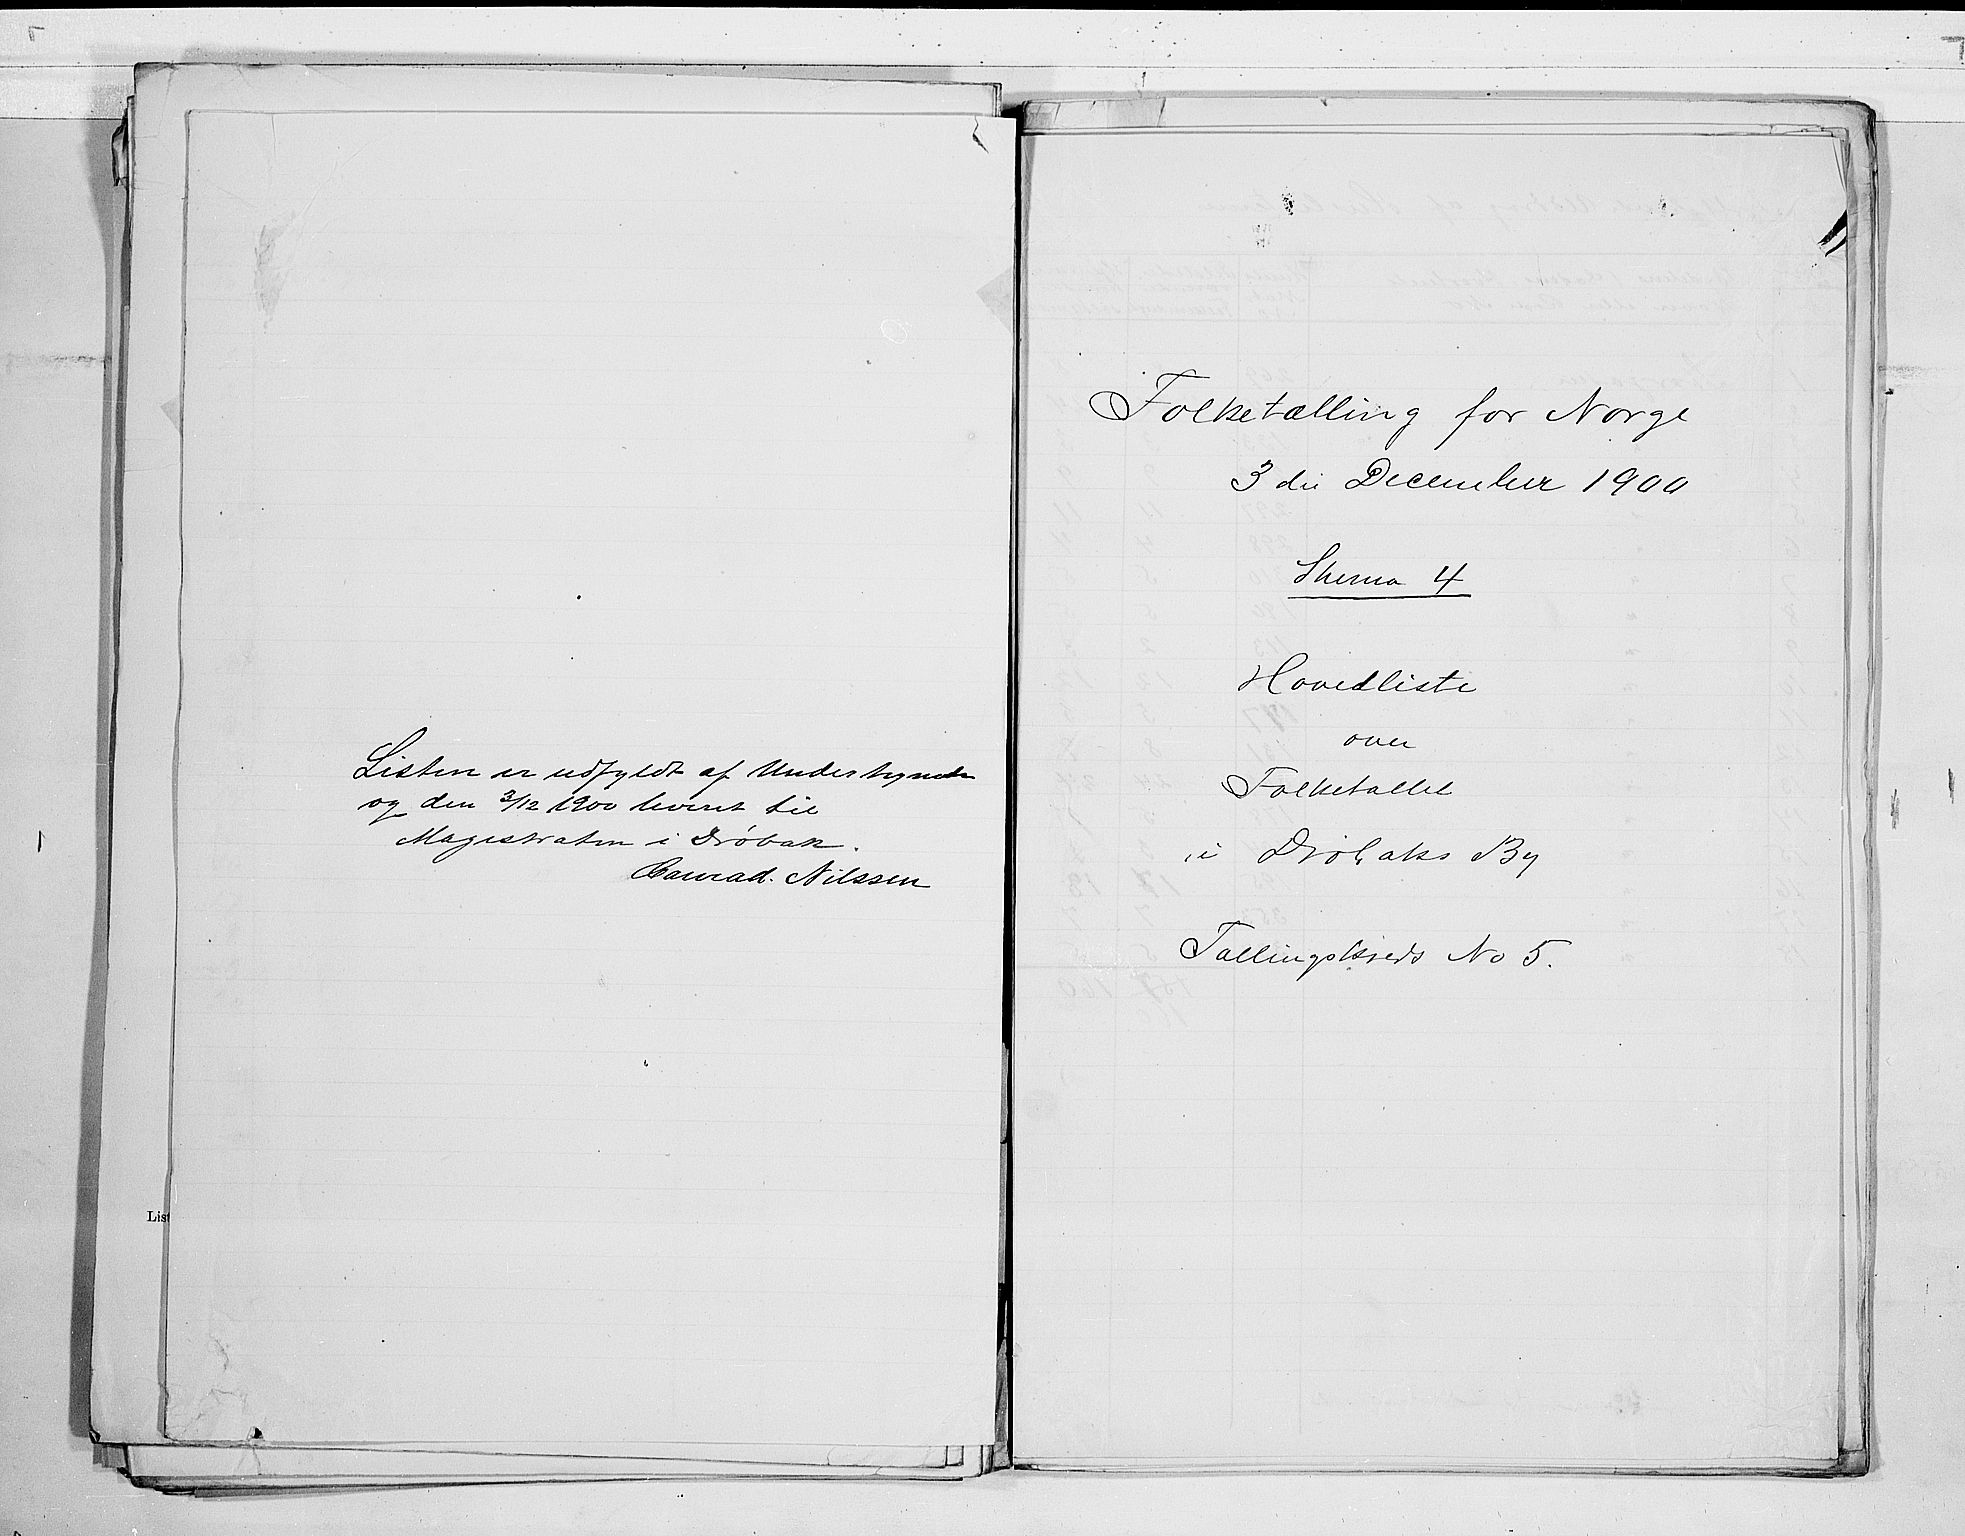 Listen er udfyldt af Undertegnede
og den 3/12 1900 leveret til
Magistraten i Drøbak.
Conrad. Nilssen
List
Folketælling for Norge
3die December 1900
Skema 4
Hovedliste
over
Folketallet
i Drøbaks By
Tællingskreds No 5.